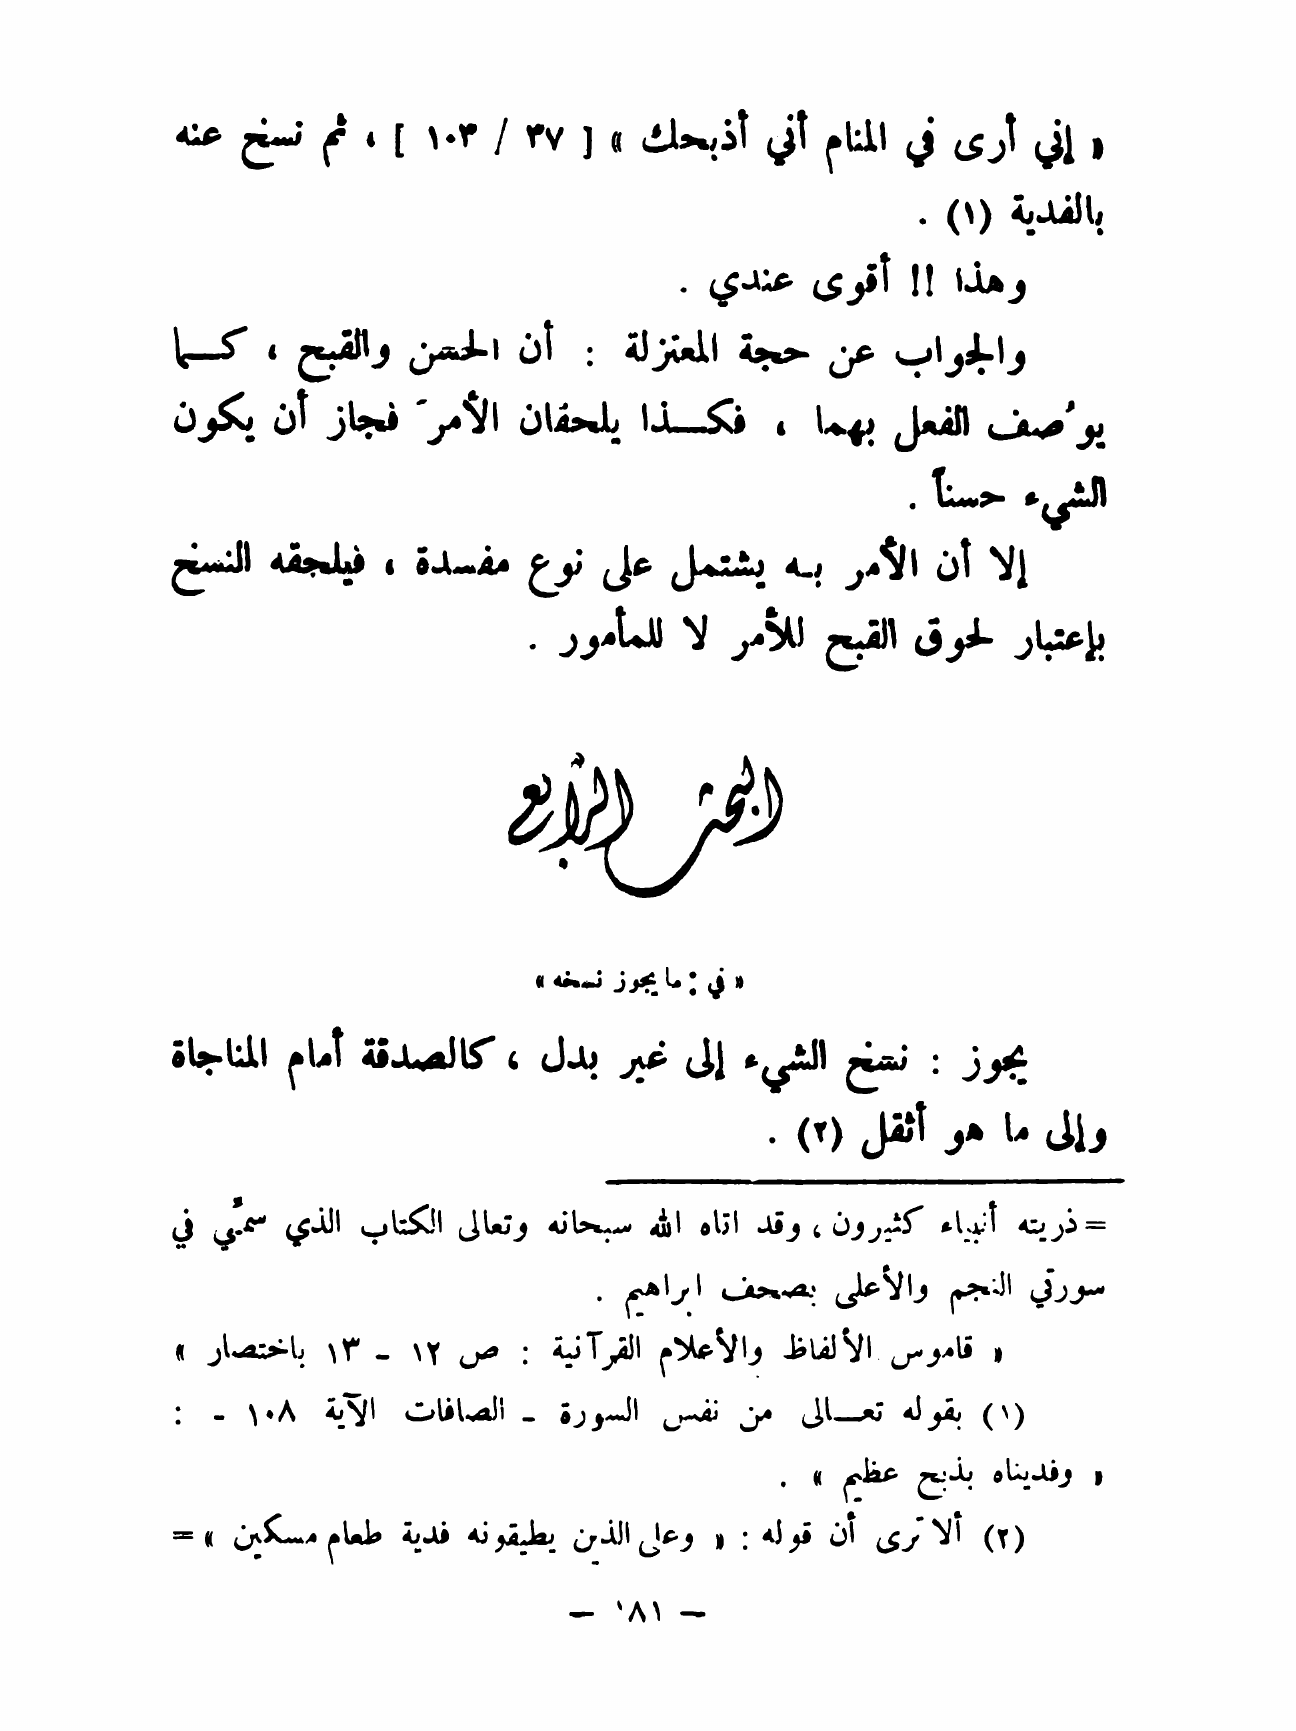 « إني أرى في المنام أني أذبحك » [ ٣٧ / ١٠٣ ] ، ثم نسخ عنه
بالفدية (١) .
وهذا !! أقوى عندي .
والجواب عن حجة المعتزلة : أن الحسن والقبح ، كــما
يوُصف الفعل بهما ، فكــذا يلحقان الأمرَ فجاز أن يكون
الشيء حسناً .
إلا أن الأمر بـه يشتمل على نوع مفسدة ، فيلحقه النسخ
بإعتبار لحوق القبح للأمر لا للمأمور .
البحث الرابع
« في : ما يجوز نسخه »
يجوز : نسخ الشيء إلى غير بدل ، كالصدقة أمام المناجاة
وإلى ما هو أثقل (٢) .
= ذريته أنبياء كثيرون ، وقد اتاه الله سبحانه وتعالى الكتاب الذي سمُّي في
سورتي النجم والأعلى بصحف ابراهيم .
« قاموس الألفاظ والأعلام القرآنية : ص ١٢ - ١٣ باختصار »
(١) بقوله تعــالى من نفس السورة - الصافات الآية ١٠٨ - :
« وفديناه بذبح عظيم » .
(٢) ألا ترى أن قوله : « وعلى الذين يطيقونه فدية طعام مسكين » =
— ١٨١ —